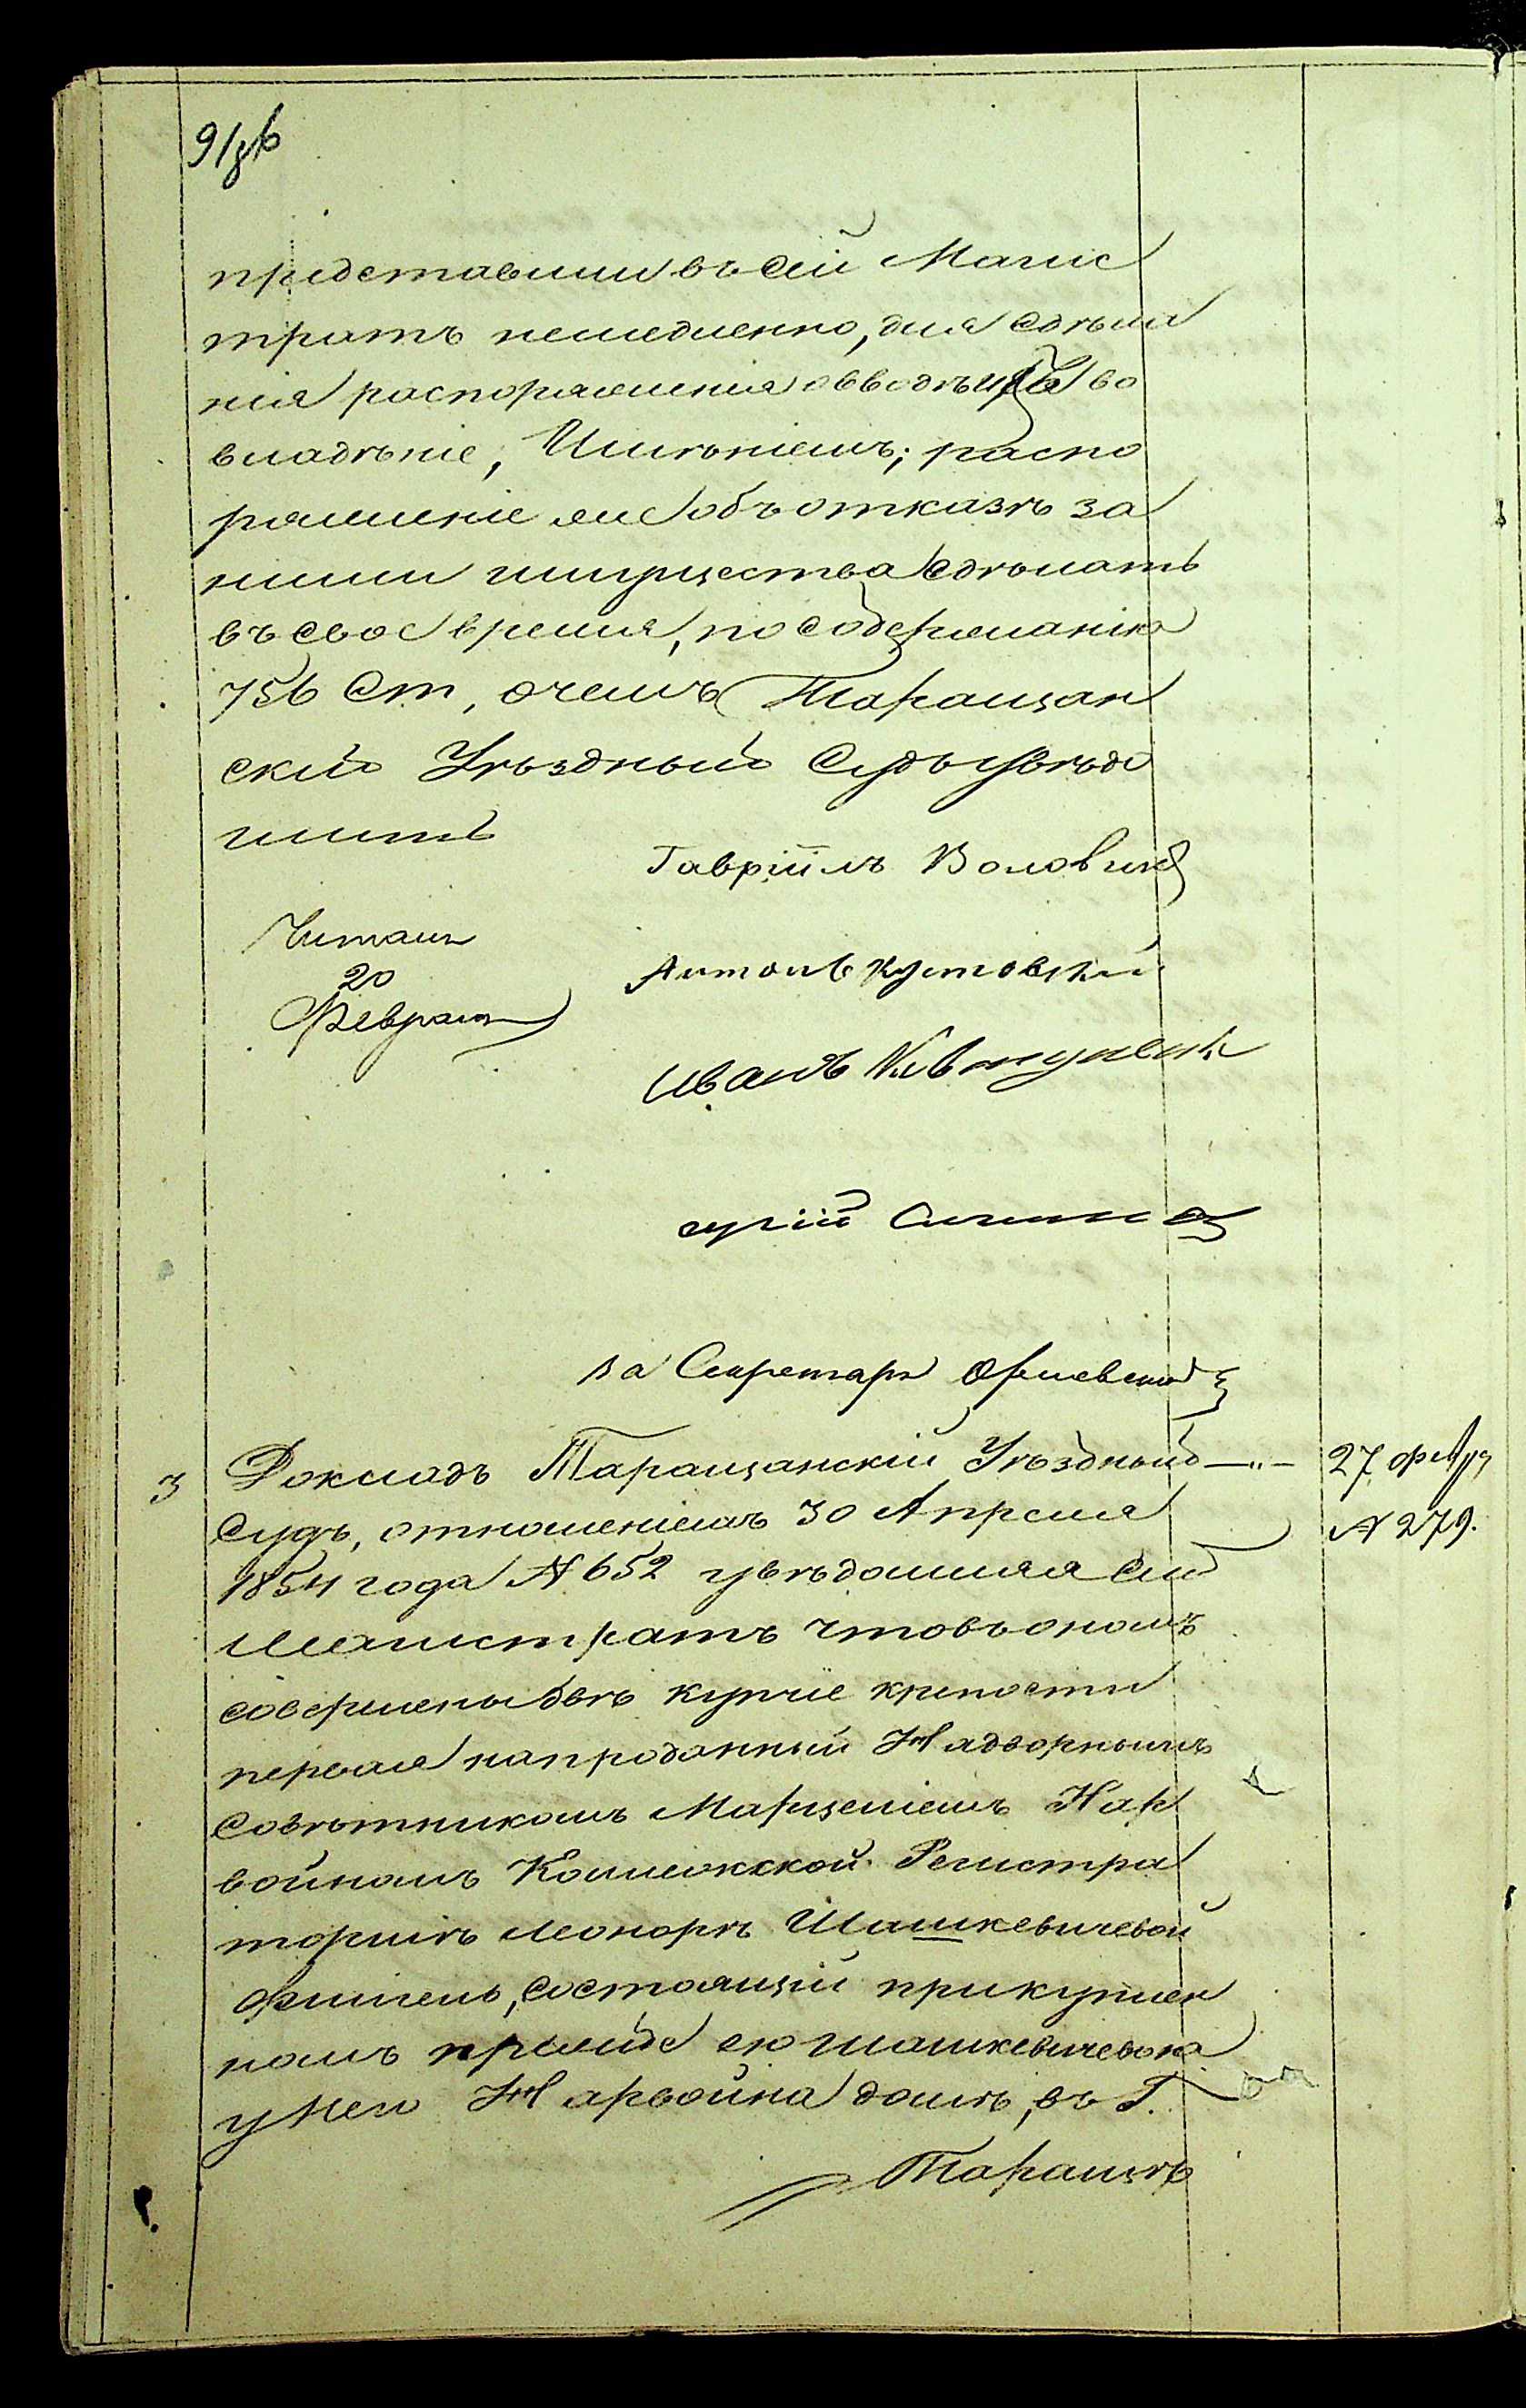 представили въ сей Магис
тратъ немедленно, для сдѣла
нія распоряженія о вводѣ ихъ во
владѣніе, Имѣніемъ; распо
ряженіе же объ отказѣ за
ними имущества сдѣлать
въ свое время, по содержанію
756 Ст, о чемъ Таращан
скій Уѣздный Судъ увѣдо
мить
Гавріилъ Воловик
Читалъ
20
Февраля
Антонъ Кустовскій
Иванъ
За Секретаря
3
Докладъ Таращанскій Уѣздный —"—
27 февр
Судъ, отношеніемъ 30 Апреля
N 279.
1854 года N 652 увѣдомляя сей
Магистратъ что въ ономъ
совершены двѣ купчіе крепости
первая на проданный Надворнымъ
Совѣтникомъ Марцеліемъ Нар
войномъ Коллежской Регистра
торшѣ Леонорѣ Шашкевичевой
флигель, состоящій при куплен
номъ прежде ею Шашкевичевою
у него Нарвойна домѣ, въ Г.
Таращѣ